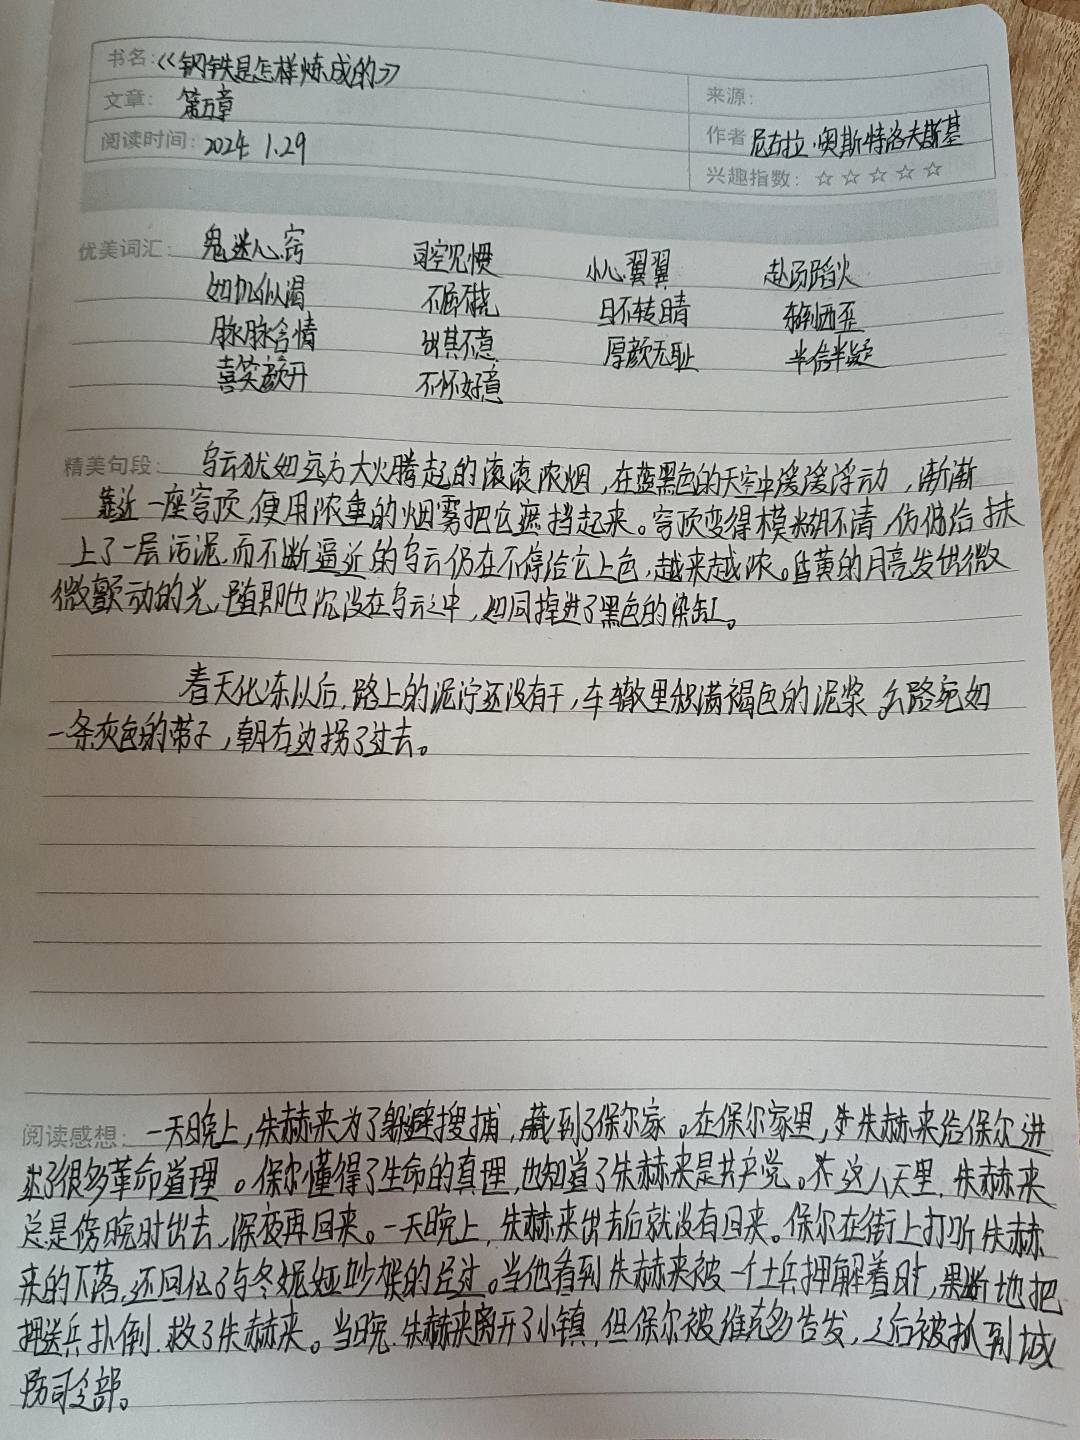 书名：《钢铁是怎样炼成的》
文章：第五章
来源：
阅读时间：2024 1.29
作者 尼古拉·奥斯特洛夫斯基
兴趣指数：☆☆☆☆☆
优美词汇：鬼迷心窍 司空见惯 小心翼翼 赴汤蹈火
如饥似渴 不屈不挠 目不转睛 东倒西歪
脉脉含情 出其不意 厚颜无耻 半信半疑
喜笑颜开 不怀好意
精美句段：乌云犹如远方大火腾起的滚滚浓烟，在蓝黑色的天空中缓缓浮动，渐渐
靠近一座穹顶，便用浓重的烟雾把它遮挡起来。穹顶变得模糊不清，仿佛给抹
上了一层污泥，而不断逼近的乌云仍在不停给它上色，越来越浓。昏黄的月亮发出微
微颤动的光，随即也沉没在乌云之中，如同掉进了黑色的染缸。
春天化冻以后，路上的泥泞还没有干，车辙里积满褐色的泥浆，公路宛如
一条灰色的带子，朝右边拐了过去。
阅读感想：一天晚上，朱赫来为了躲避搜捕，藏到了保尔家。在保尔家里，朱赫来给保尔讲
述了很多革命道理。保尔懂得了生命的真理，也知道了朱赫来是共产党。在这八天里，朱赫来
总是傍晚时出去，深夜再回来。一天晚上，朱赫来出去后就没有回来。保尔在街上打听朱赫
来的下落，还回忆了与冬妮娅吵架的经过。当他看到朱赫来被一个士兵押解着时，果断地把
押送兵扑倒，救了朱赫来。当晚，朱赫来离开了小镇，但保尔被维克多告发，之后被抓到城
防司令部。